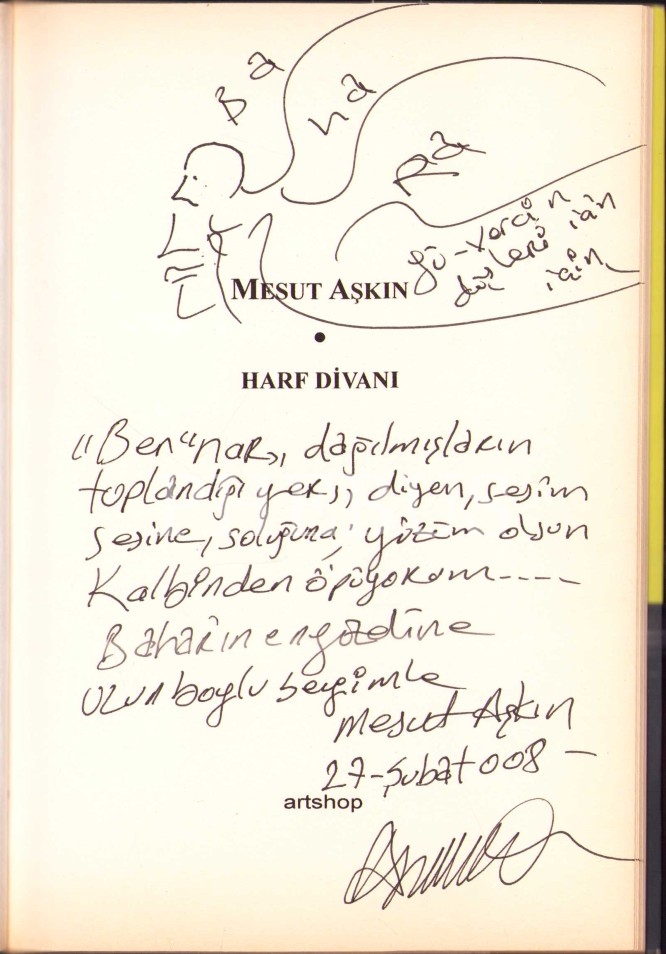 Ba
ha
Ra
gü-vercin
düşleri için
için
MESUT AŞKIN
•
HARF DİVANI
"Ben"nar,, dağılmışların
toplandığı yer,, diyen, sesim
sesine, soluğuna, yüzüm olsun
Kalbinden öpüyorum----
Baharın en güzeline
Uzun boylu sevgimle
Mesut Aşkın
27-Şubat 008 -
artshop